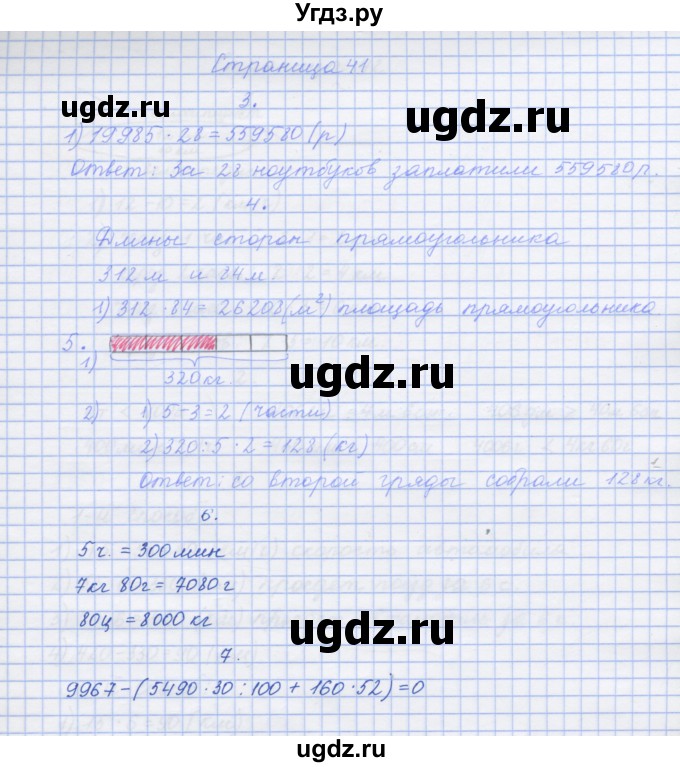 Угдз.ру
Страница 41
ugdz.ru ugdz.ru
3.
1) 19985 · 28 = 559580 (р)
Ответ: За 28 ноутбуков заплатили 559580 р.
4.
Длины сторон прямоугольника
312 м и 84 м.
1) 312 · 84 = 26208 (м²) площадь прямоугольника
5.
1)
320 кг.
ugdz.ru
2) 1) 5 - 3 = 2 (части)
2) 320 : 5 · 2 = 128 (кг)
Ответ: со второй гряды собрали 128 кг.
6.
5 ч. = 300 мин
7 кг 80 г = 7080 г
80 ц = 8000 кг
ugdz.ru
7.
9967 - (5490 · 30 : 100 + 160 · 52) = 0
ugdz.ru